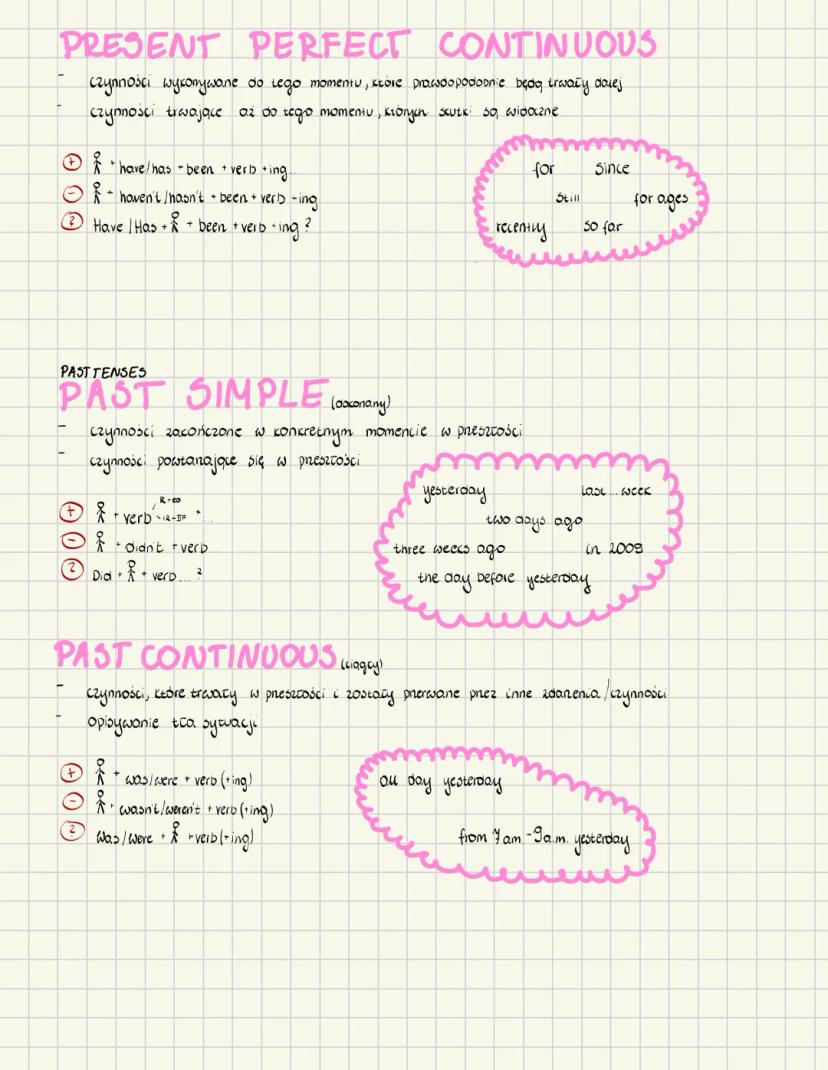 PRESENT PERFECT CONTINUOUS
- czynności wykonywane do tego momentu, które prawdopodobnie będą trwały dalej
- czynności trwające aż do tego momentu, których skutki są widoczne
+ + have/has + been + verb + ing...
- + haven't/hasn't + been + verb -ing
? Have / Has + + been + verb + ing ?
for since
still for ages
recently so far
PAST TENSES
PAST SIMPLE (dokonany)
- czynności zakończone w konkretnym momencie w przeszłości
- czynności powtarzające się w przeszłości
R + ed
+ + verb IR - II° + ...
- + didn't + verb
? Did + + verb ... ?
yesterday last ... week
two days ago
three weeks ago in 2009
the day before yesterday
PAST CONTINUOUS (ciągły)
- czynności, które trwały w przeszłości i zostały przerwane przez inne zdarzenia / czynności
- opisywanie tła sytuacji
+ + was/were + verb (+ing)
- + wasn't/weren't + verb (+ing)
? Was/were + + verb (+ing)
all day yesterday
from 7am - 9a.m. yesterday